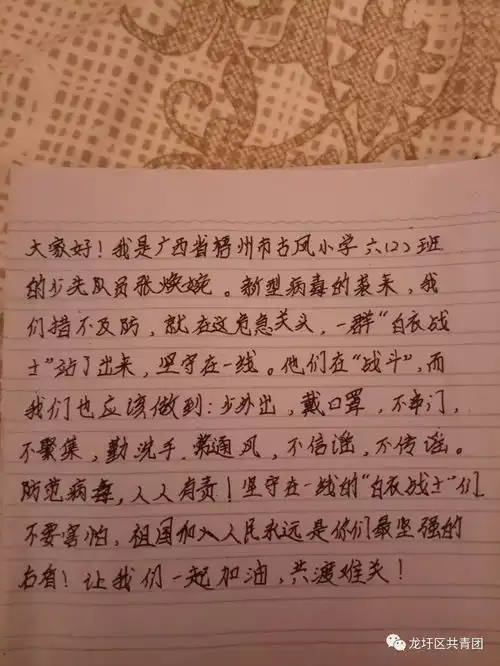 大家好！我是广西省梧州市古凤小学六(2)班
的少先队员张焕婉。新型病毒的袭来，我
们措不及防，就在这危急关头，一群“白衣战
士”站了出来，坚守在一线。他们在“战斗”，而
我们也应该做到：少外出，戴口罩，不串门，
不聚集，勤洗手，常通风，不信谣，不传谣。
防范病毒，人人有责！坚守在一线的“白衣战士”们
不要害怕，祖国加入人民永远是你们最坚强的
后盾！让我们一起加油，共渡难关！
龙圩区共青团